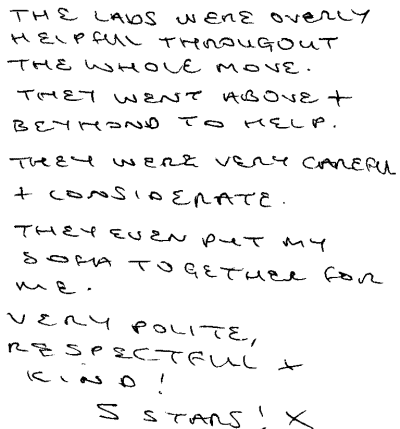 THE LADS WERE OVERLY
HELPFUL THROUGOUT
THE WHOLE MOVE.
THEY WENT ABOVE +
BEYHOND TO HELP.
THEY WERE VERY CAREFUL
+ CONSIDERATE.
THEY EVEN PUT MY
SOFA TOGETHER FOR
ME.
VERY POLITE,
RESPECTFUL +
KIND!
5 STARS! X